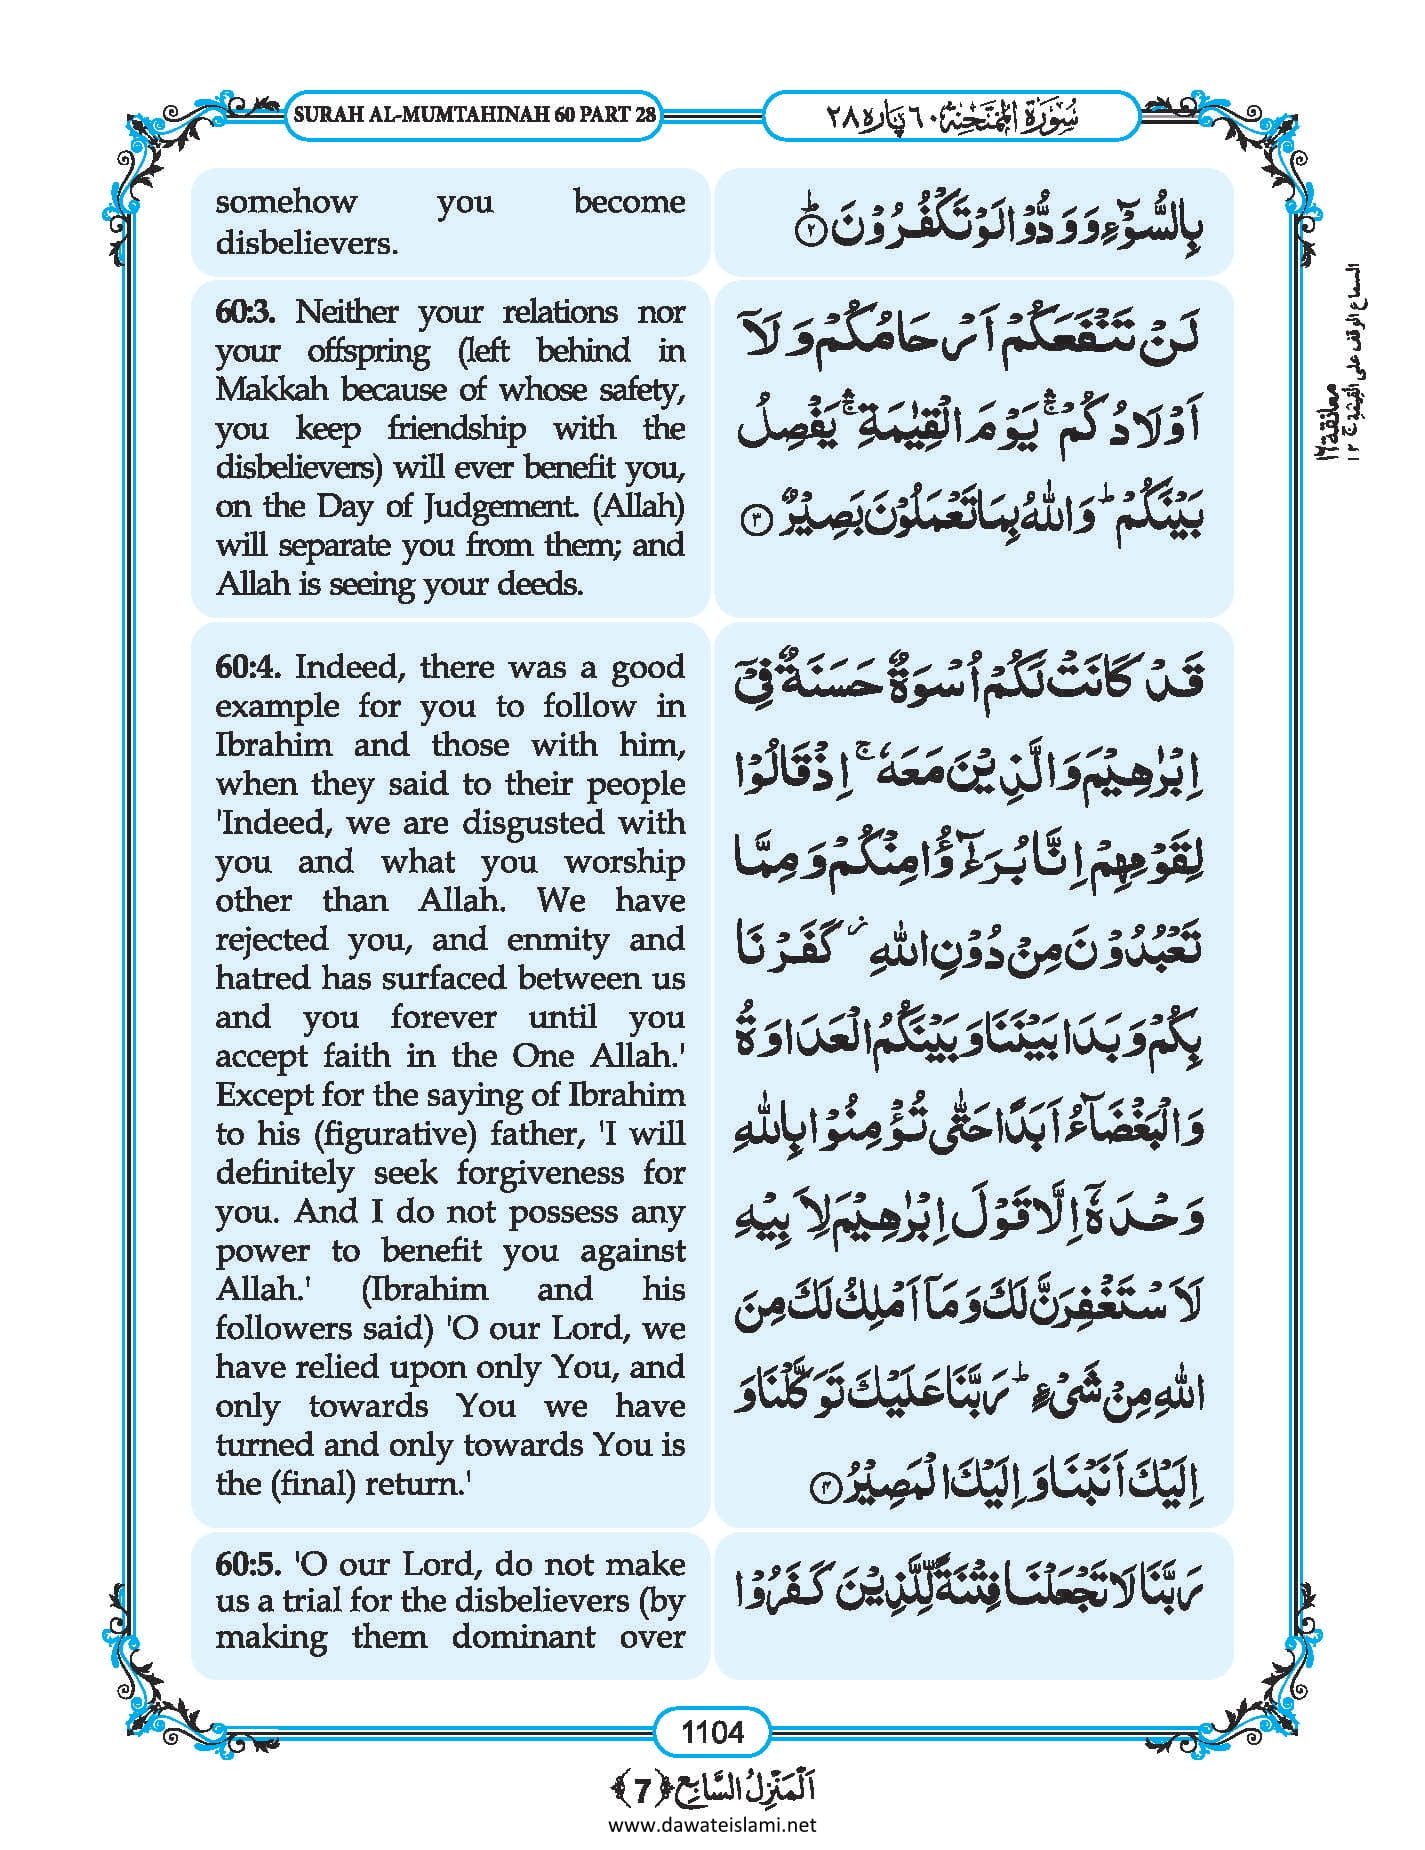 SURAH AL-MUMTAHINAH 60 PART 28
سُوْرَةُ الْمُمْتَحِنَة ٦٠ پَارہ ٢٨
somehow you become
disbelievers.
بِالسُّوْٓءِ وَ وَدُّوْا لَوْ تَكْفُرُوْنَ ؕ﴿۲﴾
60:3. Neither your relations nor
your offspring (left behind in
Makkah because of whose safety,
you keep friendship with the
disbelievers) will ever benefit you,
on the Day of Judgement. (Allah)
will separate you from them; and
Allah is seeing your deeds.
لَنْ تَنْفَعَكُمْ اَرْحَامُكُمْ وَ لَاۤ
اَوْلَادُكُمْ ۚۛ یَوْمَ الْقِیٰمَةِ ۚۛ یَفْصِلُ
بَیْنَكُمْ ؕ وَ اللّٰهُ بِمَا تَعْمَلُوْنَ بَصِیْرٌ ﴿۳﴾
معانقة ١٦
60:4. Indeed, there was a good
example for you to follow in
Ibrahim and those with him,
when they said to their people
'Indeed, we are disgusted with
you and what you worship
other than Allah. We have
rejected you, and enmity and
hatred has surfaced between us
and you forever until you
accept faith in the One Allah.'
Except for the saying of Ibrahim
to his (figurative) father, 'I will
definitely seek forgiveness for
you. And I do not possess any
power to benefit you against
Allah.' (Ibrahim and his
followers said) 'O our Lord, we
have relied upon only You, and
only towards You we have
turned and only towards You is
the (final) return.'
قَدْ كَانَتْ لَكُمْ اُسْوَةٌ حَسَنَةٌ فِیْۤ
اِبْرٰهِیْمَ وَ الَّذِیْنَ مَعَهٗ ۚ اِذْ قَالُوْا
لِقَوْمِهِمْ اِنَّا بُرَءٰٓؤُا مِنْكُمْ وَ مِمَّا
تَعْبُدُوْنَ مِنْ دُوْنِ اللّٰهِ ؗ كَفَرْنَا
بِكُمْ وَ بَدَا بَیْنَنَا وَ بَیْنَكُمُ الْعَدَاوَةُ
وَ الْبَغْضَآءُ اَبَدًا حَتّٰى تُؤْمِنُوْا بِاللّٰهِ
وَحْدَهٗۤ اِلَّا قَوْلَ اِبْرٰهِیْمَ لِاَبِیْهِ
لَاَسْتَغْفِرَنَّ لَكَ وَ مَاۤ اَمْلِكُ لَكَ مِنَ
اللّٰهِ مِنْ شَیْءٍ ؕ رَبَّنَا عَلَیْكَ تَوَكَّلْنَا وَ
اِلَیْكَ اَنَبْنَا وَ اِلَیْكَ الْمَصِیْرُ ﴿۴﴾
60:5. 'O our Lord, do not make
us a trial for the disbelievers (by
making them dominant over
رَبَّنَا لَا تَجْعَلْنَا فِتْنَةً لِّلَّذِیْنَ كَفَرُوْا
1104
اَلْمَنْزِلُ السَّابِع ﴿7﴾
www.dawateislami.net